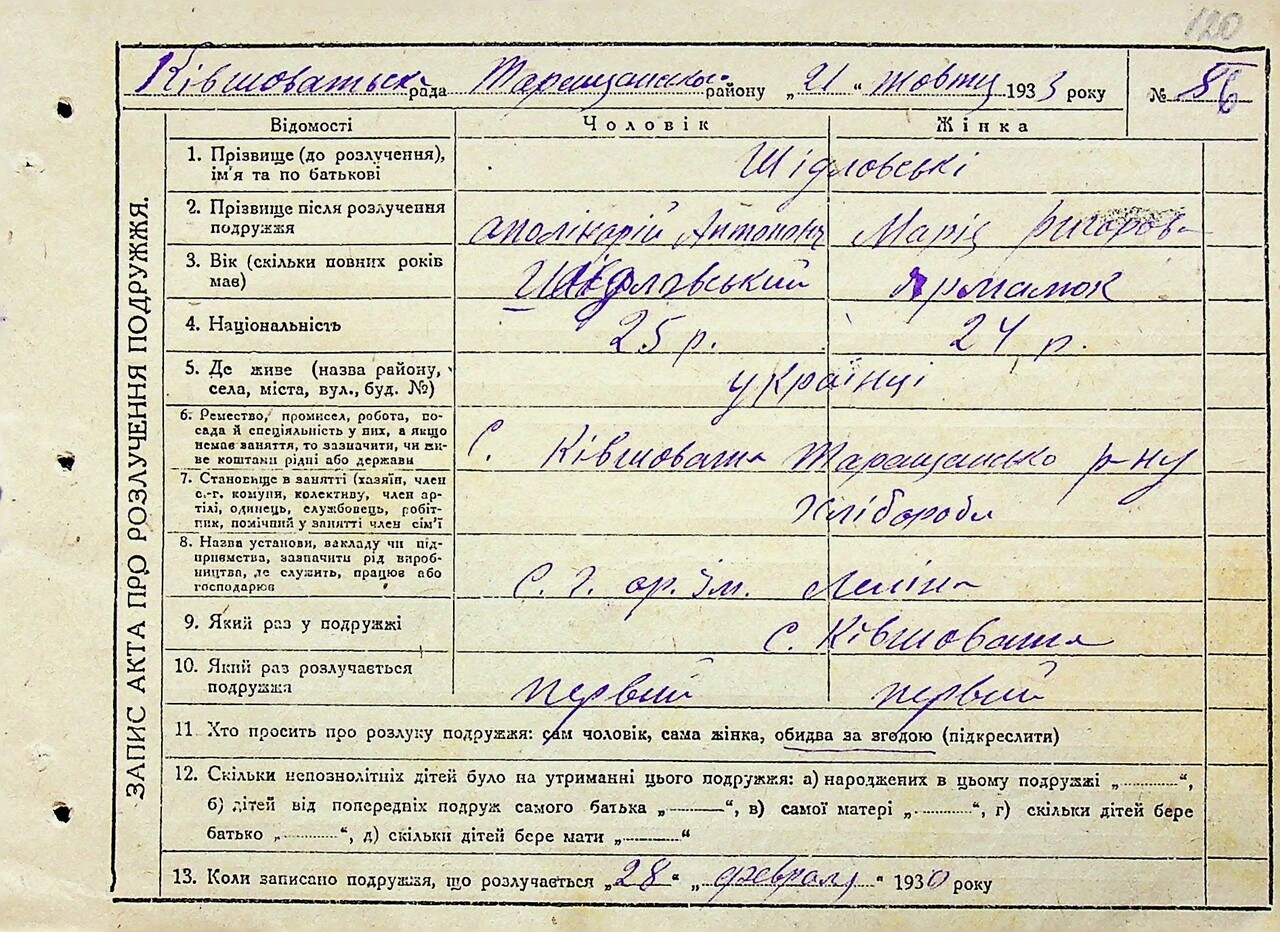 120
Ківшоватськ рада Таращансько району „21“ жовтц 1933 року № 86
ЗАПИС АКТА ПРО РОЗЛУЧЕННЯ ПОДРУЖЖЯ.
Відомості Чоловік Жінка
1. Прізвище (до розлучення), ім'я та по батькові Шідловські
2. Прізвище після розлучення подружжя Аполінарій Антонович Марія Григоров
3. Вік (скільки повних років має) Шідловський Ярмалюк
4. Національність 25 р. 24 р.
5. Де живе (назва району, села, міста, вул., буд. №) українці
6. Ремество, промисел, робота, по-
сада й спеціяльність у них, а якщо
немає заняття, то зазначити, чи жи-
ве коштани рідні або держави С. Ківшовата Таращансько р-ну
7. Становище в занятті (хазяїн, член
с.-г. комуни, колективу, член ар-
тілі, одинець, службовець, робіт-
ник, помічний у занятті член сім'ї Хлібороби
8. Назва установи, закладу чи під-
приємства, зазначити рід вироб-
ництва, де служить, працює або
господарює С. г. ар. ім. Леніна
9. Який раз у подружжі с. Ківшовата
10. Який раз розлучається
подружжя первий первий
11. Хто просить про розлуку подружжя: сам чоловік, сама жінка, обидва за згодою (підкреслити)
12. Скільки непознолітніх дітей було на утриманні цього подружжя: а) народжених в цьому подружжі „..........“,
б) дітей від попередніх подруж самого батька „..........“, в) самої матері „..........“, г) скільки дітей бере
батько „..........“, д) скільки дітей бере мати „..........“
13. Коли записано подружжя, що розлучається „28“ „февраля“ 1930 року